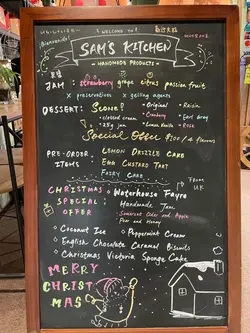 ¡Bienvenidos!
• WELCOME TO •
SAM'S KITCHEN
HANDMADE PRODUCTS
JAM: strawberry grape citrus passion fruit
x preservatives x gelling agents
DESSERT: Scone!
• clotted cream
• 25g jam
• Original • Raisin
• Cranberry • Earl Grey
• Vanilla • Rose
Special Offer $100 / 4 flavours
PRE-ORDER ITEMS:
LEMON DRIZZLE CAKE
EGG CUSTARD TART
FAIRY CAKE
CHRISTMAS SPECIAL OFFER
Waterhouse Fayre
Handmade Jam
FROM UK
Somerset Cider and Apple
Pear and Honey
• Coconut Ice • Peppermint Cream
• English Chocolate Caramel Biscuits
• Christmas Victoria Sponge Cake
MERRY
CHRIST
MAS